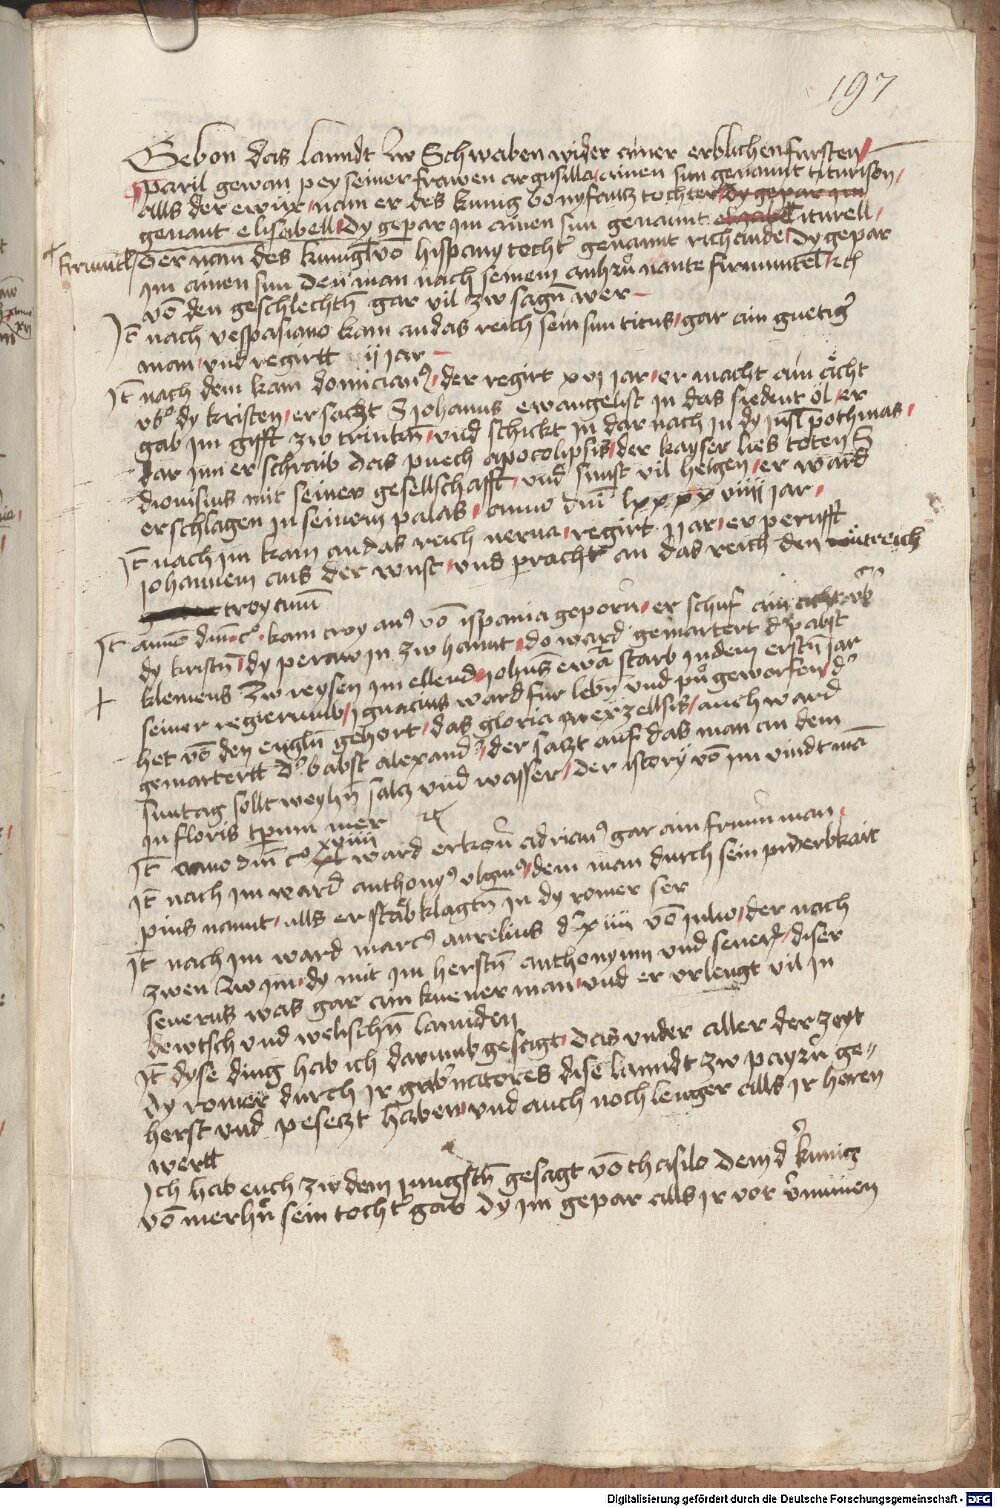 197
Gebon das lanndt zw Schwaben wider ainer erblichen fursten
paril gewan pey seiner frawen argusilla ainen sun genannt titurison
alls der erwur nam er des kunig bonyfantz tochter dy gepar im
genant elisabell dy gepar im ainen sun genannt titurell
firmutell
der nam des kunig vō hispany tocht genannt richaude dy gepar
im ainen sun den man nach seinem anhrñ nante firmuntel
vō den geschlechtñ gar vil zw sagñ wer
Jt nach vespasiano kam an das reich sein sun titus gar ain guetig
man vnd regirtt ij jar
Jt nach dem kam domician9 der regirt xvi jar er macht ain ächt
vb dy kristen er saczt S johanns ewangelist in das siedent öl er
gab im gifft zw trinkñ vnd schickt in dar nach in dy insl pothmas
dar inn er schraib das puech apocolipsis der kayser lies toten S
dionisius mit seiner gesellschafft vnd sunst vil helgen er ward
erschlagen in seinem palas anno dnī lxxxx viiij jar
Jt nach im kam an das reich nerua regirt ij jar er perufft
johannem aus der wust vnd pracht an das reich den
troyanum
Jt anno dnī c kam troyan9 vō ispania geporn er schuf ain acht vb
dy kristñ dy peraw in zw hannt do ward gemartert d pabst
klemens zw reysen im ellend johns ewā starb in dem erstñ jar
seiner regierung ignacius ward fur lebñ vnd pñ geworfen d
het vō den englñ gehort das gloria in exzellsis auch ward
gemartertt d babst alexand der saczt auf das man an dem
suntag sollt weyhñ salcz vnd wasser der istory vō im vindt mā
in floris tpmm mer
Jt anno dnī c xviiii ward erkorn adrian9 gar ain frum man
Jt nach im ward anthony9 dem man durch sein
pius nannt alls er starb klagtñ in dy romer ser
Jt nach im ward marc9 aurelius d xiiii vō julio der nach
zwen zw im dy mit im herstñ anthonymm vnd seuer diser
seuerus was gar ain kuener man vnd er vrlengt vil in
dewtsch vnd welischñ lannden
Jt dyse ding hab ich darumb gesagt das vnder aller der zeyt
dy romer durch ir gubnatores dise lanndt zw payrñ ge=
herst vnd pesetzt haben vnd auch noch lenger alls ir horen
wertt
Ich hab euch zw dem jungstñ gesagt vō thasilo dem d kunig
vō merhñ sein tocht gab dy im gepar alls ir vor vernumen
Digitalisierung gefördert durch die Deutsche Forschungsgemeinschaft - DFG